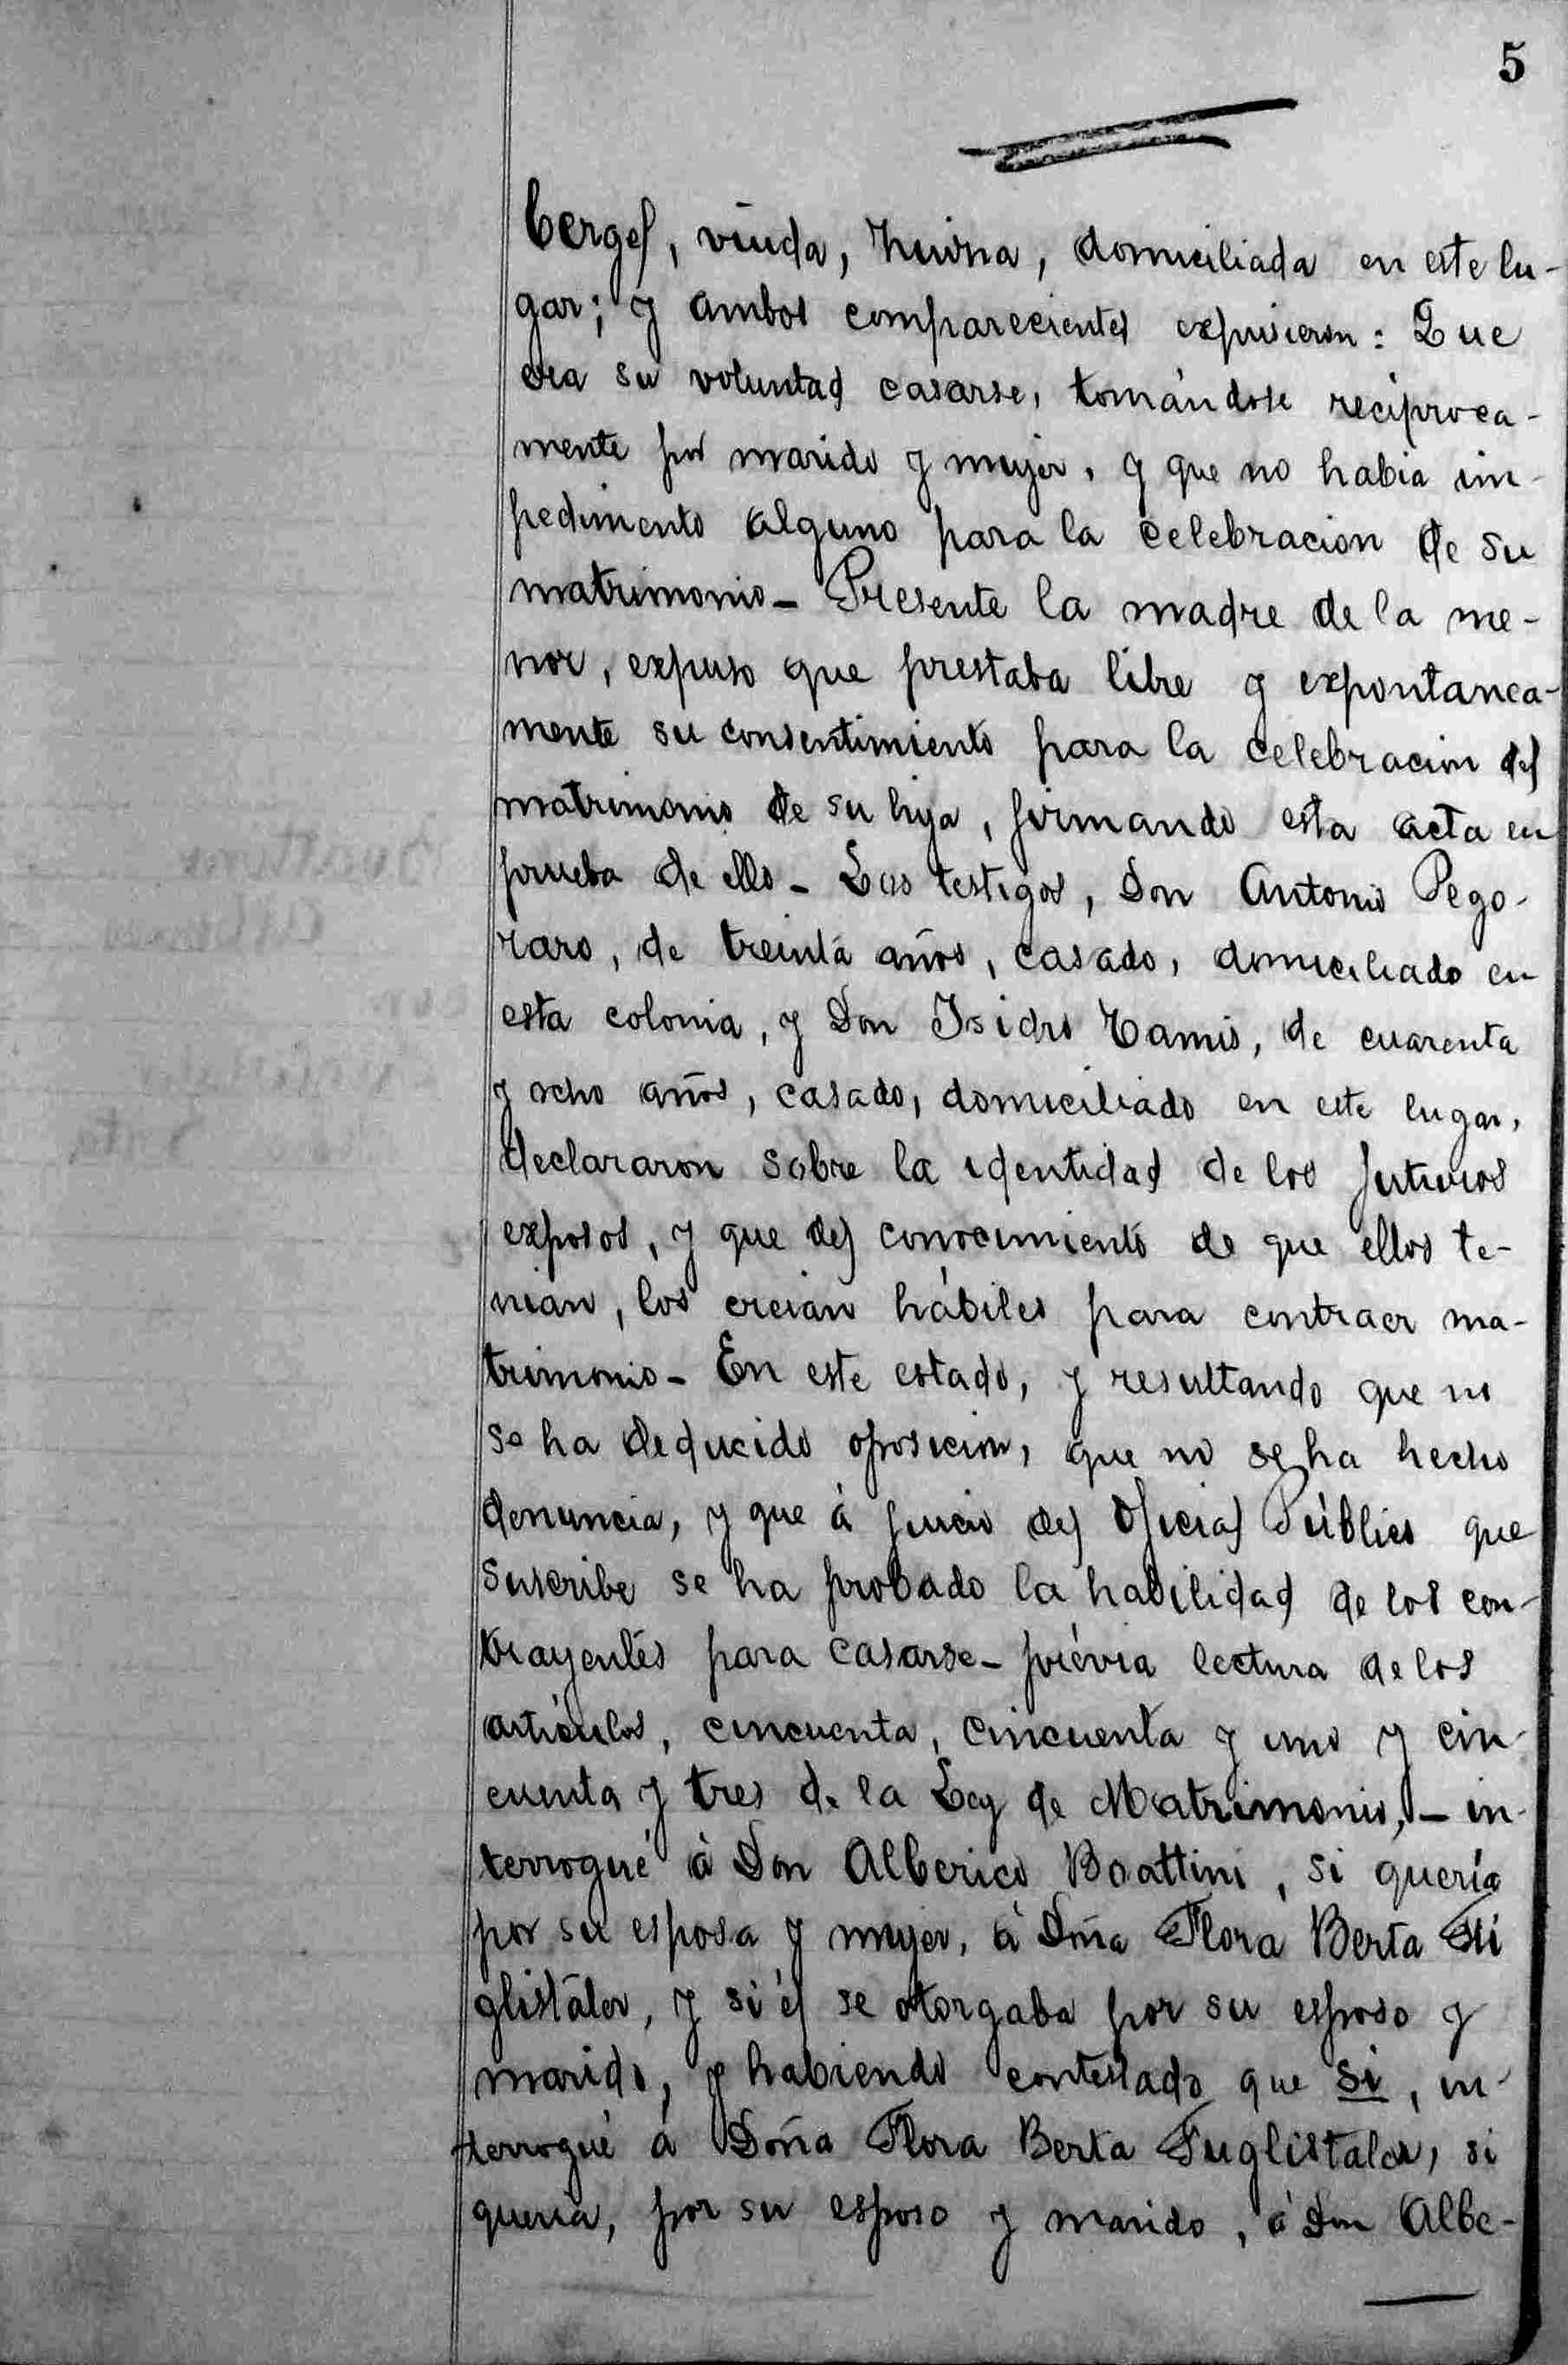 5
berges, viuda, suiza, domiciliada en este lu-
gar; y ambos comparecientes expusieron: Que
era su voluntad casarse, tomándose reciproca-
mente por marido y mujer, y que no habia im-
pedimento alguno para la celebracion de su
matrimonio- Presente la madre de la me-
nor, expuso que prestaba libre y expontanea-
mente su consentimiento para la celebracion del
matrimonio de su hija, firmando esta acta en
prueba de ello- Los testigos, Don Antonio Pego-
raro, de treinta años, casado, domiciliado en
esta colonia, y Don Isidro Ramis, de cuarenta
y ocho años, casado, domiciliado en este lugar,
declararon sobre la identidad de los futuros
exposos, y que del conocimiento de que ellos te-
nian, los creian hábiles para contraer ma-
trimonio- En este estado, y resultando que no
se ha deducido oposicion, que no se ha hecho
denuncia, y que á juicio del Oficial Público que
suscribe se ha probado la habilidad de los con-
trayentes para casarse- prévia lectura de los
artículos, cincuenta, cincuenta y uno y cin-
cuenta y tres de la Ley de Matrimonio,- in-
terrogué á Don Alberico Boattini, si quería
por su esposa y mujer, á Dña Flora Berta Fü
glistaler, y si él se otorgaba por su esposo y
marido, y habiendo contestado que si, in-
terrogué á Doña Flora Berta Fuglistaler, si
queria, por su esposo y marido, á Don Albe-